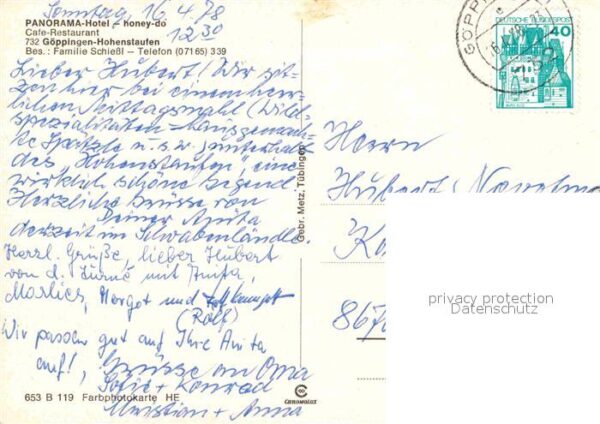 Sonntag, 16.4.78
12.30
PANORAMA-Hotel – honey-do
Cafe-Restaurant
732 Göppingen-Hohenstaufen
Bes.: Familie Schießl – Telefon (07165) 339
Lieber Hubert! Wir sit-
zen hier bei einem herr-
lichen Mittagsmahl (Wild-
spezialitäten – hausgemach-
te Spätzle u.s.w.) unterhalb
des "Hohenstaufen", eine
wirklich schöne Gegend
Herzliche Grüsse von
Deiner Anita
derzeit im Schwabenländle.
Herzl. Grüße, lieber Hubert
von d. Türné mit Anita,
Marlies, Margot und
(Rolf)
Wir passen gut auf Ihre Anita
auf!, Grüsse an Oma
Sofie + Konrad
Christian + Anna
653 B 119 Farbphotokarte HE
Gebr. Metz, Tübingen
CHROMOLUX
GÖPPI
DEUTSCHE BUNDESPOST
40
Herrn
Hubert
867
privacy protection
Datenschutz